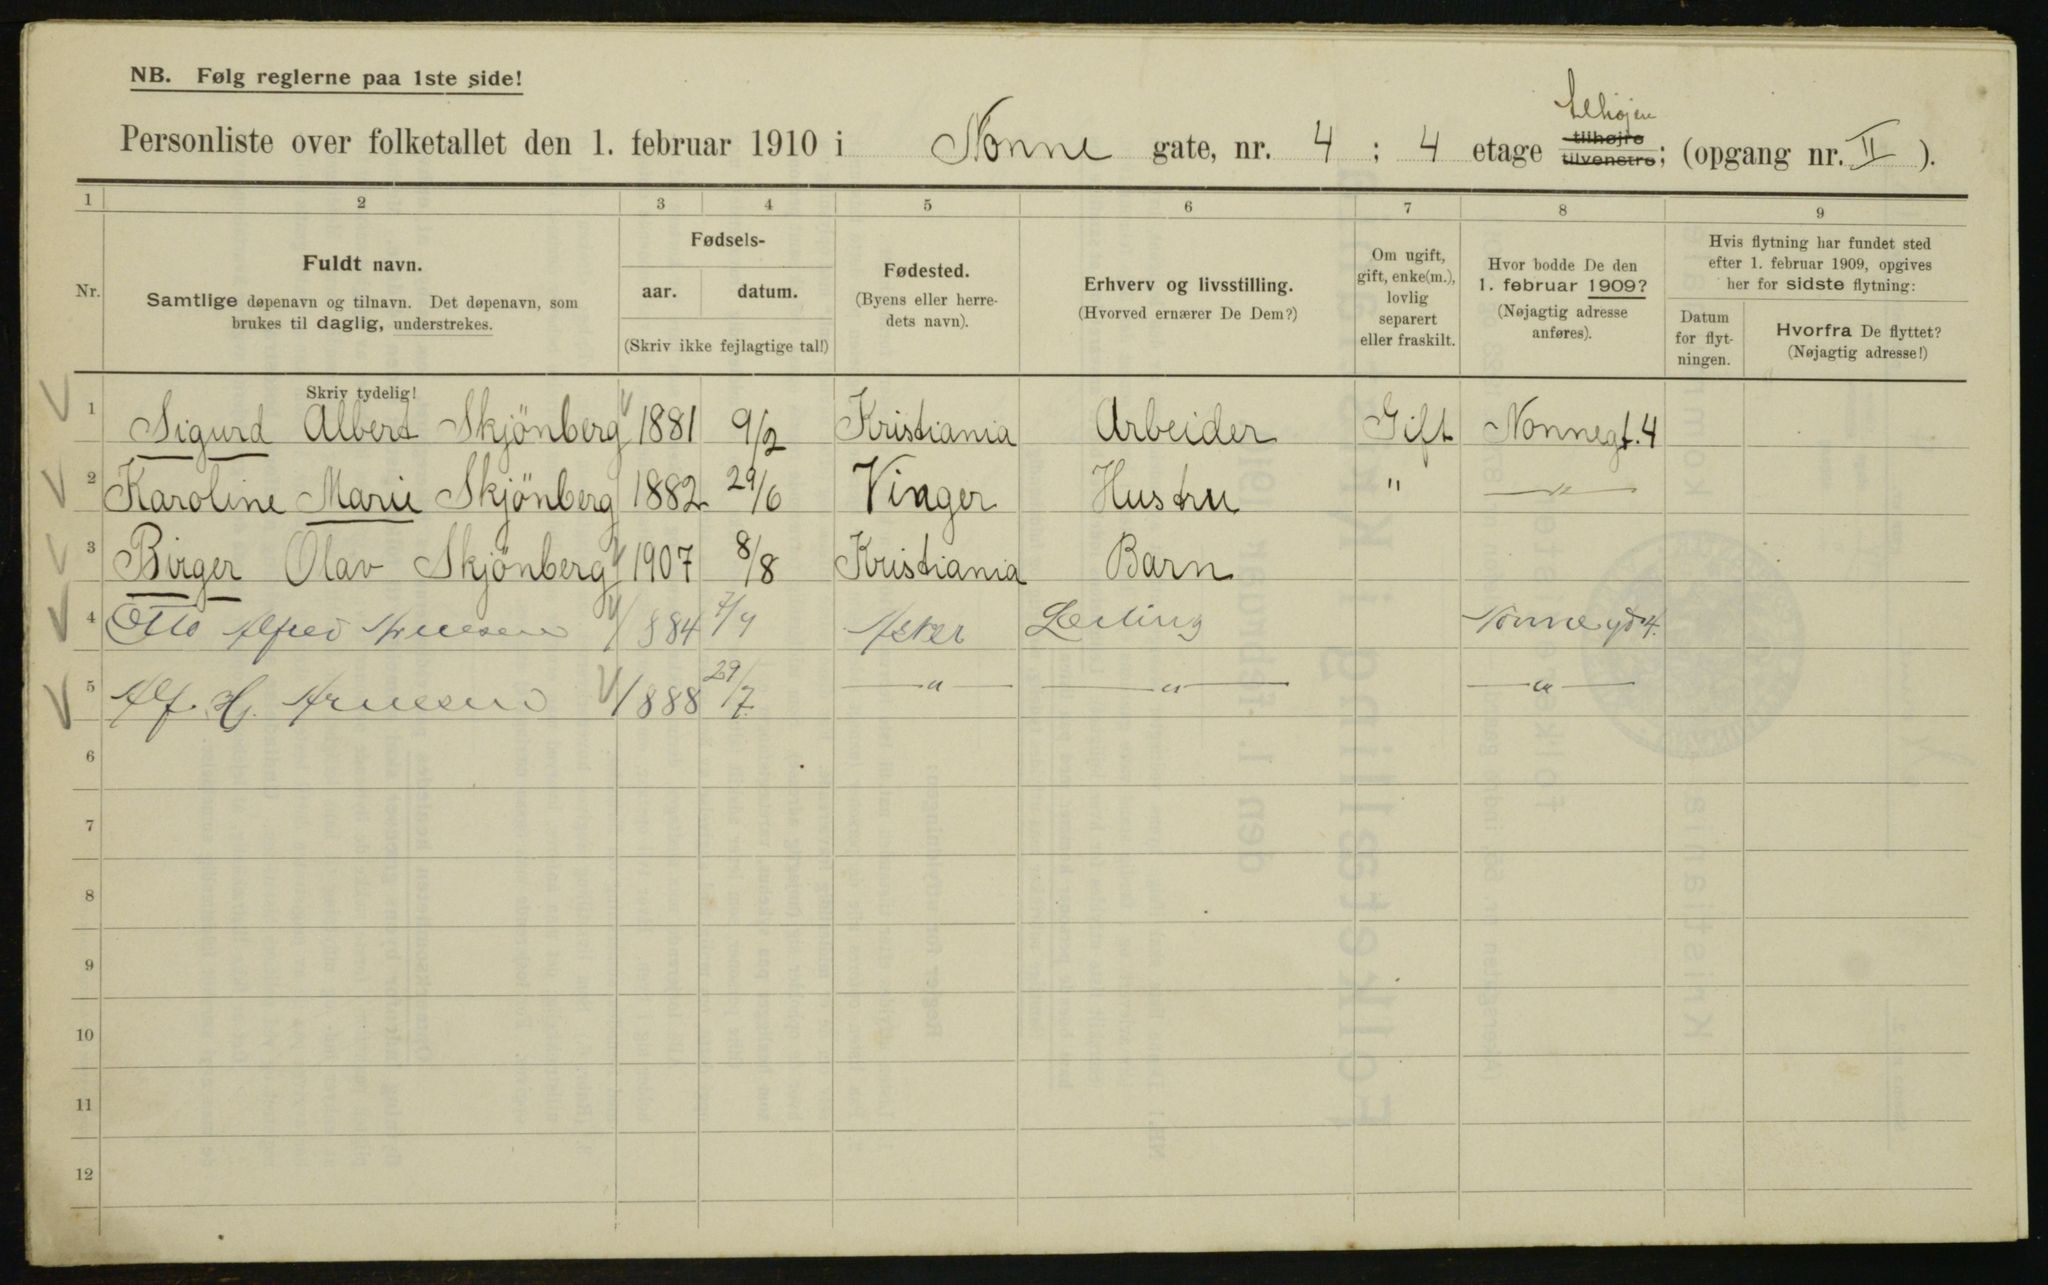 NB. Følg reglerne paa 1ste side!
Personliste over folketallet den 1. februar 1910 i Nonne gate, nr. 4 ; 4 etage tilhøjre tilvenstre; (opgang nr. II ).
1 2 3 4 5 6 7 8 9
Nr.
Fuldt navn.
Samtlige døpenavn og tilnavn. Det døpenavn, som
brukes til daglig, understrekes.
Fødsels-
aar. datum.
(Skriv ikke fejlagtige tal!)
Fødested.
(Byens eller herre-
dets navn).
Erhverv og livsstilling.
(Hvorved ernærer De Dem?)
Om ugift,
gift, enke(m.),
lovlig
separert
eller fraskilt.
Hvor bodde De den
1. februar 1909?
(Nøjagtig adresse
anføres).
Hvis flytning har fundet sted
efter 1. februar 1909, opgives
her for sidste flytning:
Datum
for flyt-
ningen.
Hvorfra De flyttet?
(Nøjagtig adresse!)
Skriv tydelig!
1 Sigurd Albert Skjönberg 1881 9/2 Kristiania Arbeider Gift Nonnegt. 4
2 Karoline Marie Skjönberg 1882 29/6 Vinger Hustru " —"—
3 Birger Olav Skjönberg 1907 8/8 Kristiania Barn
4 Otto Alfred Arnesen 1884 7/9 Asker Nonnegd 4.
5 Alf. H. Arnesen 1888 29/7 —"— —"— —"—
6
7
8
9
10
11
12